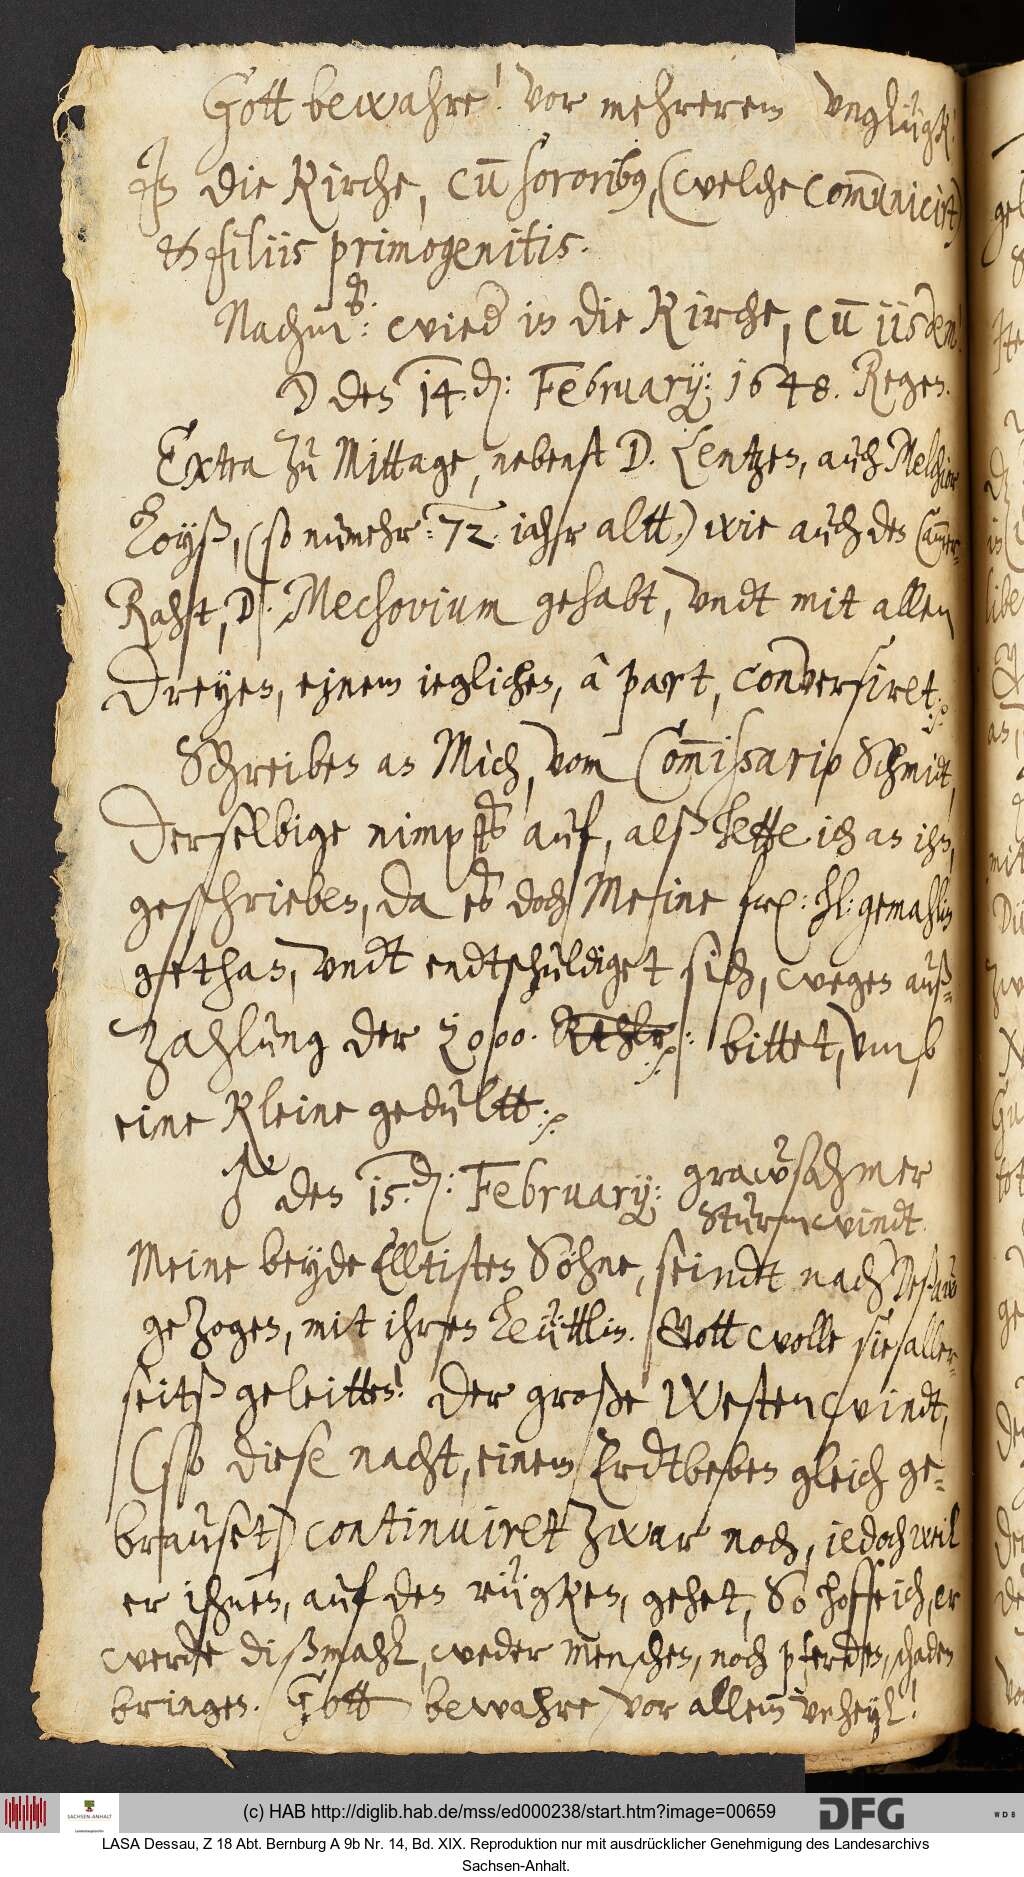 Gott bewahre! vor mehrerem unglügk!
In die Kirche, cū sororibꝰ, (welche com̄unicirt)
et filiis primogenitis.
Nachm̄: wieder in die Kirche, cū iisdem.
☽ den 14.den: February: 1648. Regen.
Extra zu Mittage, nebenst D. Lentzen, auch Melchior
Loyß, (so nunmehr: 72. iahr altt.) wie auch den Cam̄er-
Raht, D. Mechovium gehabt, undt mit allen
dreyen, einem ieglichen, à part, conversiret.
Schreiben an Mich, vom Com̄issario Schmidt,
derselbige nimpts auf, alß hette ich an ihn,
geschrieben, da es doch Meine fr: hl: gemahlin
gethan, undt endtschuldiget sich, wegen auß-
zahlung der 2000. Rthlr: bittet, umb
eine kleine gedultt.
♂ den 15.den: February: grawsahmer
Sturmwindt.
Meine beyde Elltisten Söhne, seindt nach Deßaw
gezogen, mit ihren Leüttlin. Gott wolle sie aller-
seitß geleitten! Der große Westenwindt,
(so diese nacht, einem Erdtbeben gleich ge-
brauset) continuiret zwar noch, iedoch weil
er ihnen, auf den rügken, gehet, So hoffe ich, er
werde dißmahl, weder Menschen, noch pferden, schaden
bringen. Gott bewahre vor allem unheyl!
(c) HAB http://diglib.hab.de/mss/ed000238/start.htm?image=00659
SACHSEN-ANHALT
DFG
WDB
LASA Dessau, Z 18 Abt. Bernburg A 9b Nr. 14, Bd. XIX. Reproduktion nur mit ausdrücklicher Genehmigung des Landesarchivs
Sachsen-Anhalt.